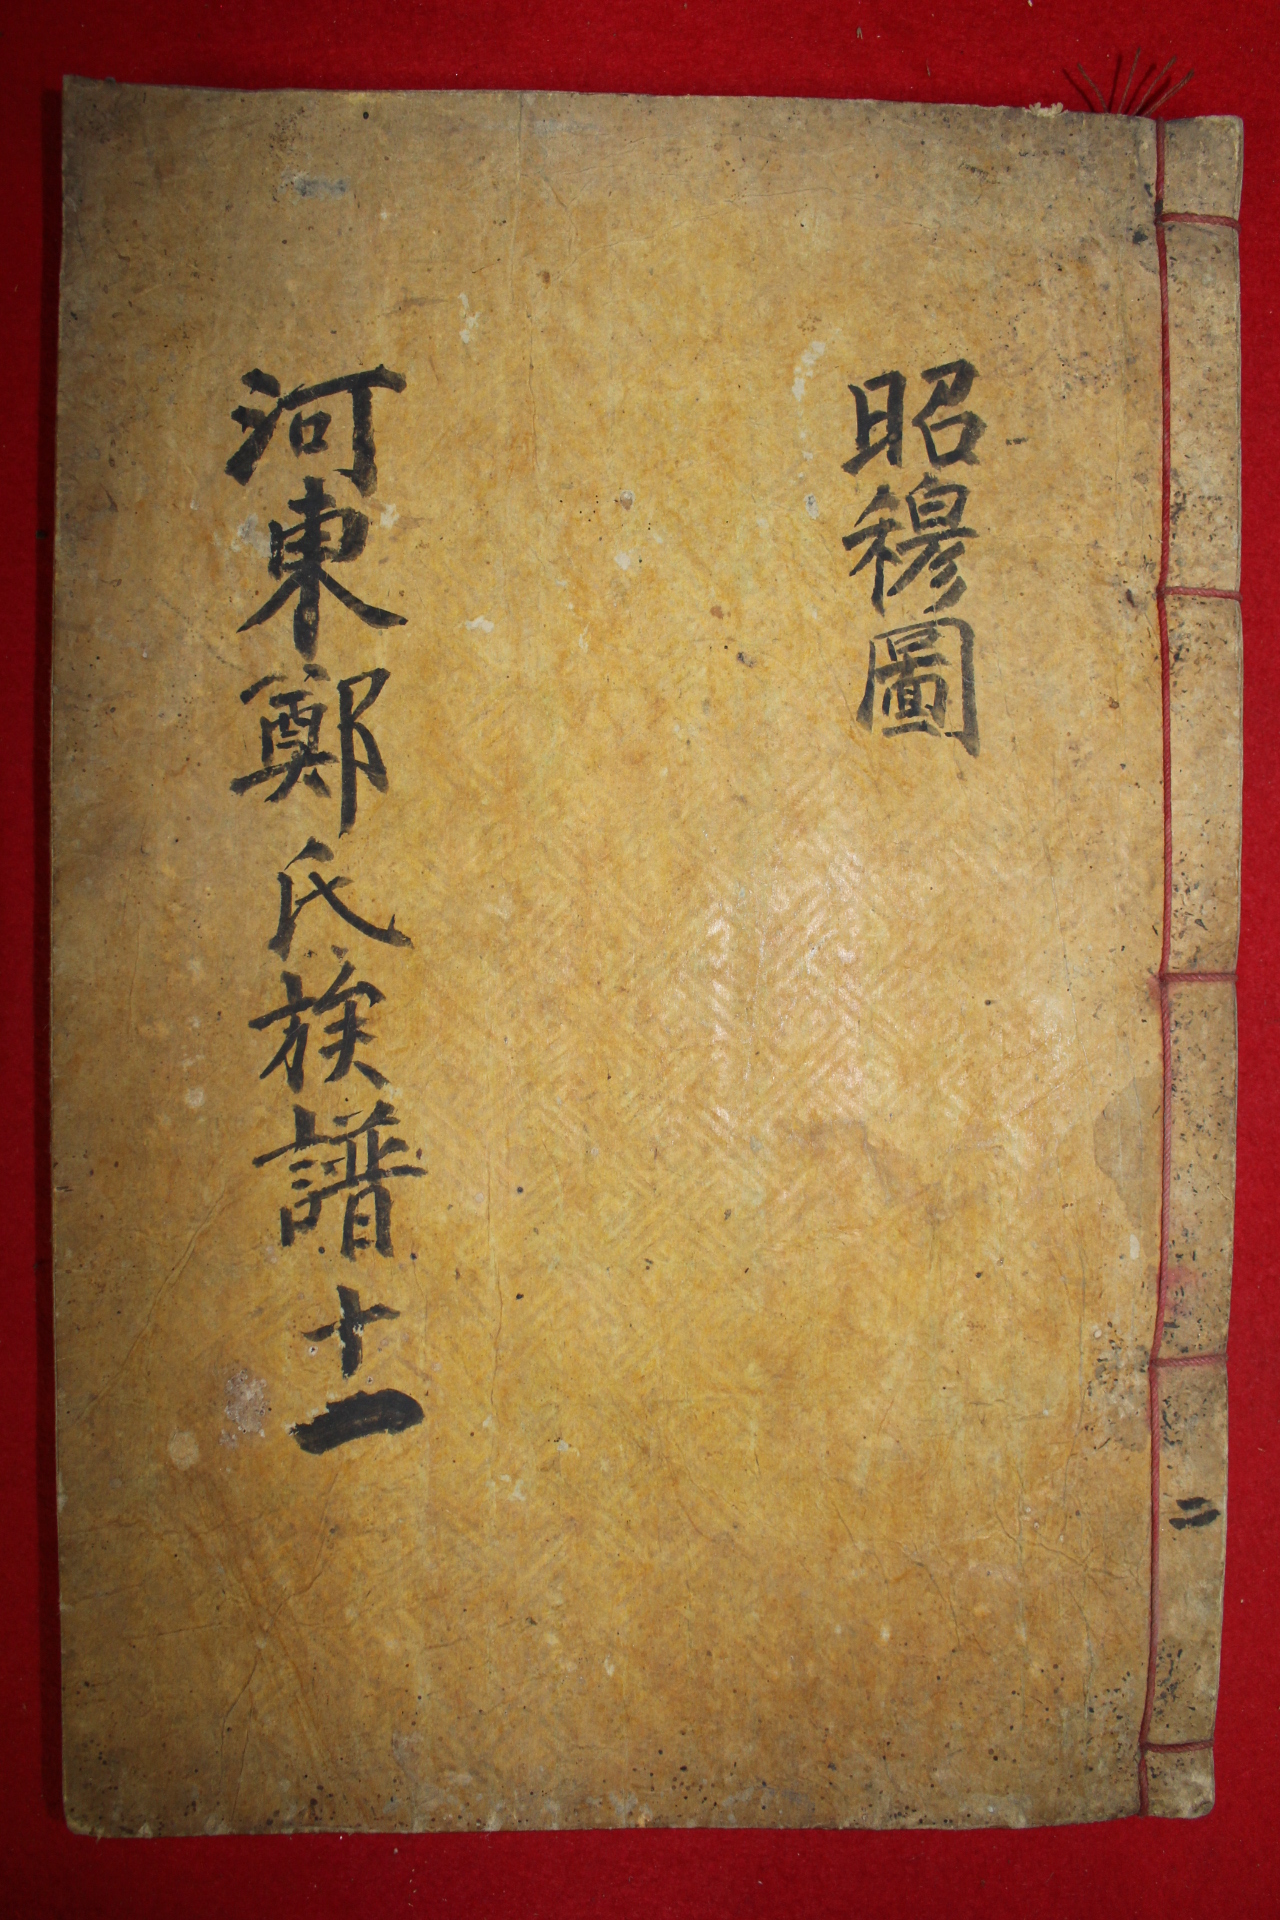 昭穆圖
河東鄭氏族譜十一
二